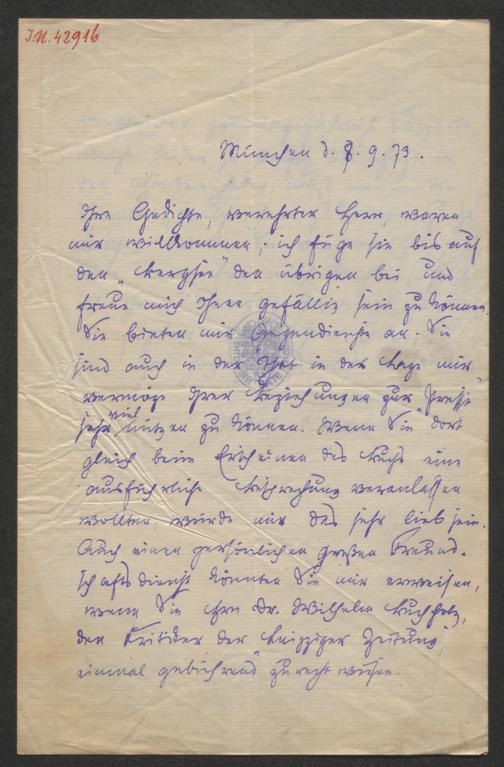 I.N. 42916
München d. 8. 9. 73.
Ihre Gedichte, verehrter Herr, waren
mir willkommen; ich füge sie bis auf
den „Bergsee" den übrigen bei und
freue mich Ihnen gefällig sein zu können.
Sie bieten mir Gegendienste an; Sie
sind auch in der That in der Lage mir
vermöge Ihrer Beziehungen zur „Presse"
sehr viel nützen zu können. Wenn Sie dort
gleich beim Erscheinen des Buchs eine
ausführliche Besprechung veranlassen
wollten, würde mir das sehr lieb sein.
Auch einen persönlichen großen Freund-
schaftsdienst könnten Sie mir erweisen,
wenn Sie Hrn Dr. Wilhelm Buchholz,
den Kritiker der „Leipziger Zeitung",
einmal gebührend zurecht wiesen.